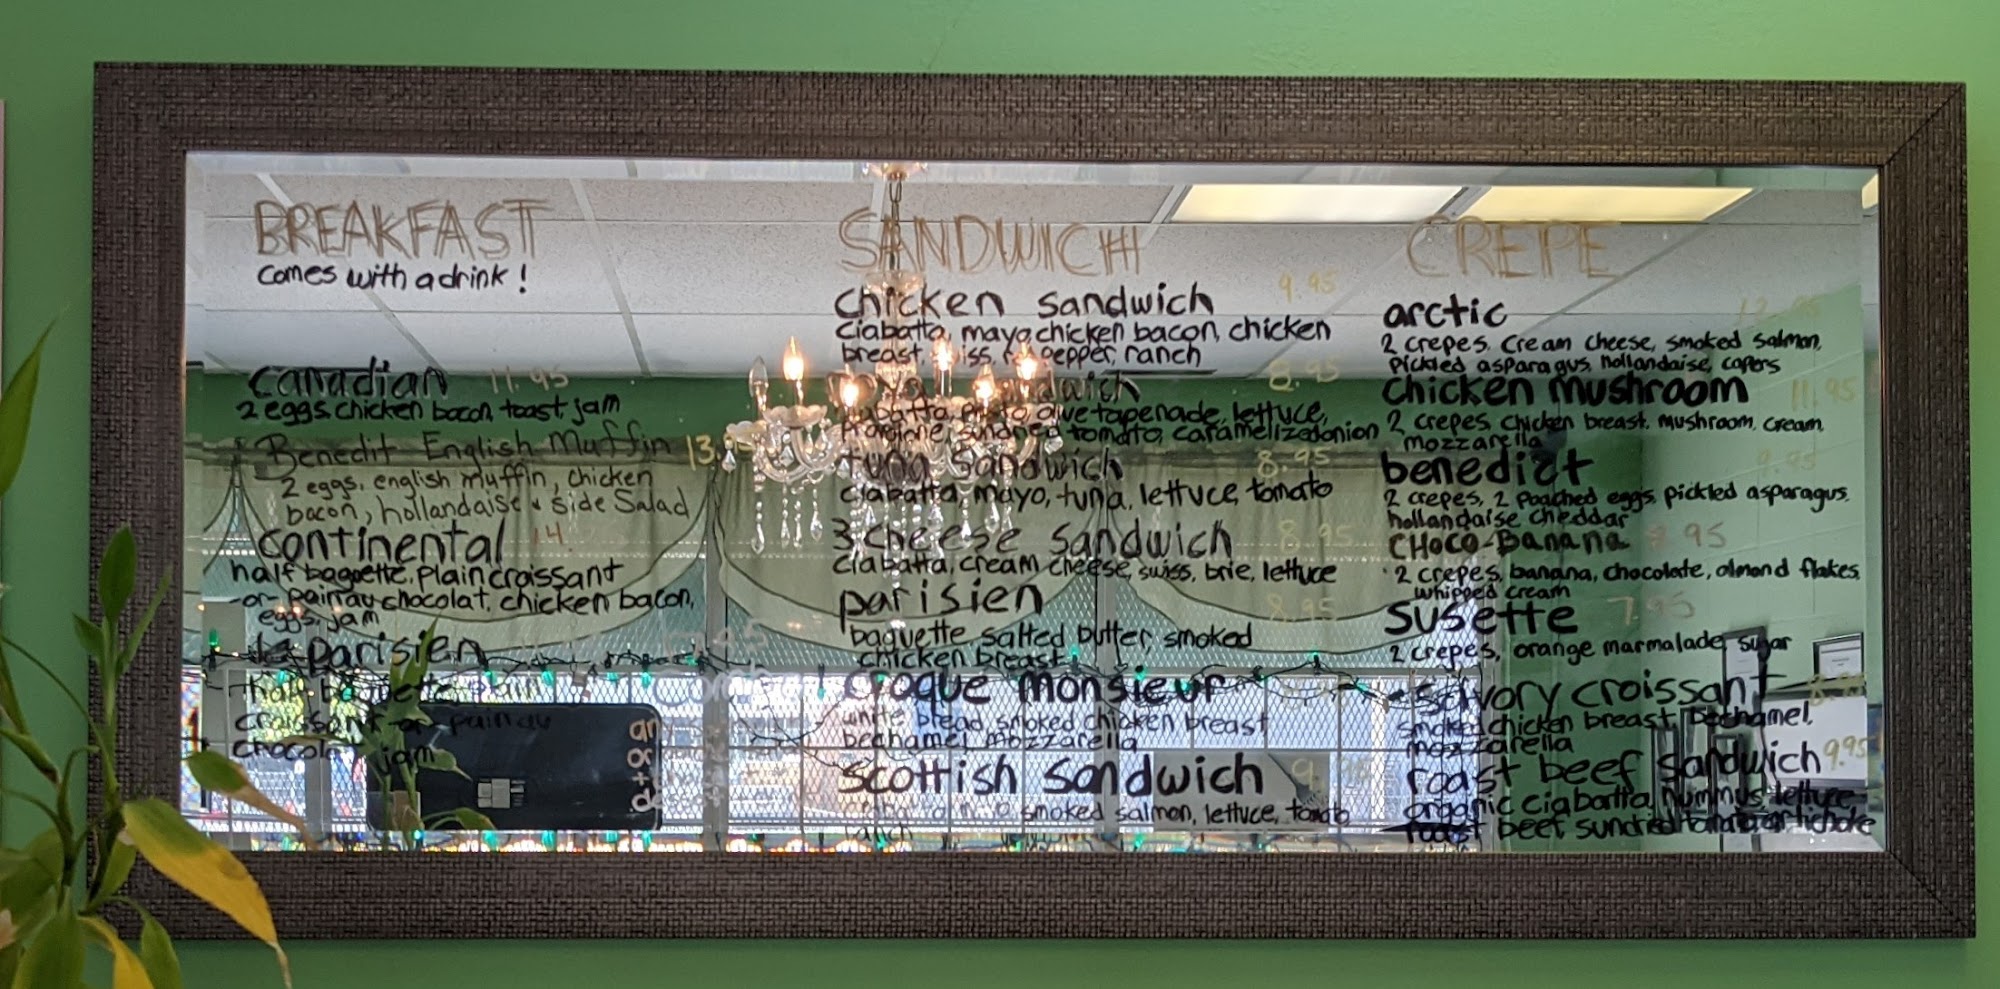 BREAKFAST
comes with a drink!
Canadian 11.95
2 eggs, chicken bacon, toast, jam
Benedit English Muffin 13.
2 eggs, english muffin, chicken
bacon, hollandaise & side Salad
continental 14.
half baguette, plain croissant
-or- pain au chocolat, chicken bacon,
eggs, jam
le parisien
half baguette plain
croissant or pain au
chocolat jam
SANDWICH
chicken sandwich 9.95
ciabatta, mayo, chicken bacon, chicken
breast, pepper, ranch
sandwich 8.95
olive tapenade, lettuce,
sundried tomato, caramelized onion
tuna sandwich 8.95
ciabatta, mayo, tuna, lettuce, tomato
3 cheese sandwich 8.95
ciabatta, cream cheese, swiss, brie, lettuce
parisien 8.95
baguette, salted butter, smoked
chicken breast
croque monsieur
white bread, smoked chicken breast
bechamel, mozzarella
scottish sandwich
smoked salmon, lettuce, tomato
ranch
CREPE
arctic 12.95
2 crepes, cream cheese, smoked salmon,
pickled asparagus, hollandaise, capers
chicken mushroom 11.95
2 crepes, chicken breast, mushroom, cream,
mozzarella
benedict 9.95
2 crepes, 2 poached eggs, pickled asparagus,
hollandaise cheddar
CHOCO-Banana
2 crepes, banana, chocolate, almond flakes,
whipped cream
susette 7.95
2 crepes, orange marmalade, sugar
savory croissant
smoked chicken breast, bechamel,
mozzarella
roast beef sandwich 9.95
organic ciabatta, hummus, lettuce,
roast beef, sundried tomato, artichoke